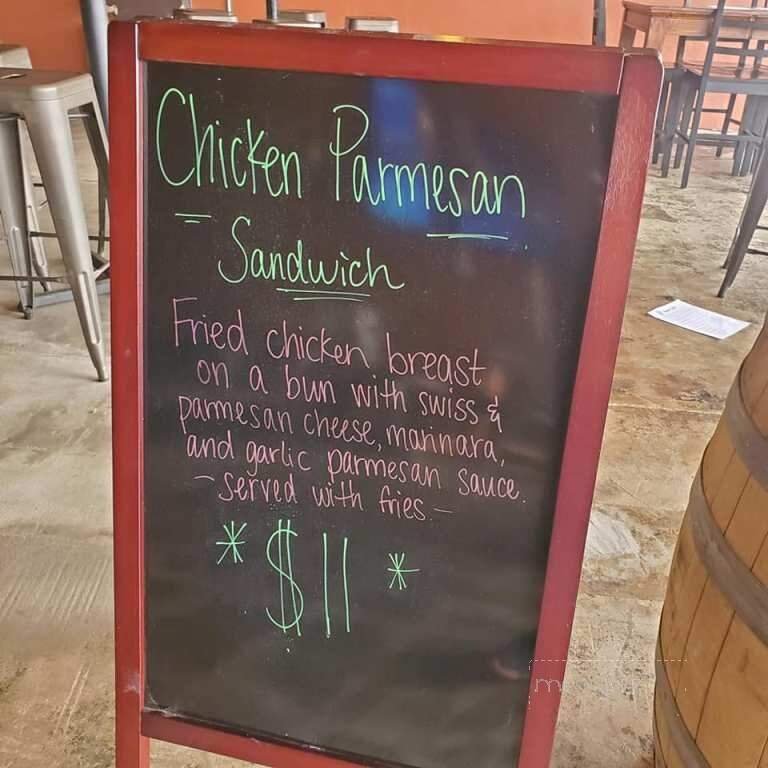 Chicken Parmesan
Sandwich
Fried chicken breast
on a bun with swiss &
parmesan cheese, marinara,
and garlic parmesan sauce.
- served with fries. -
* $11 *